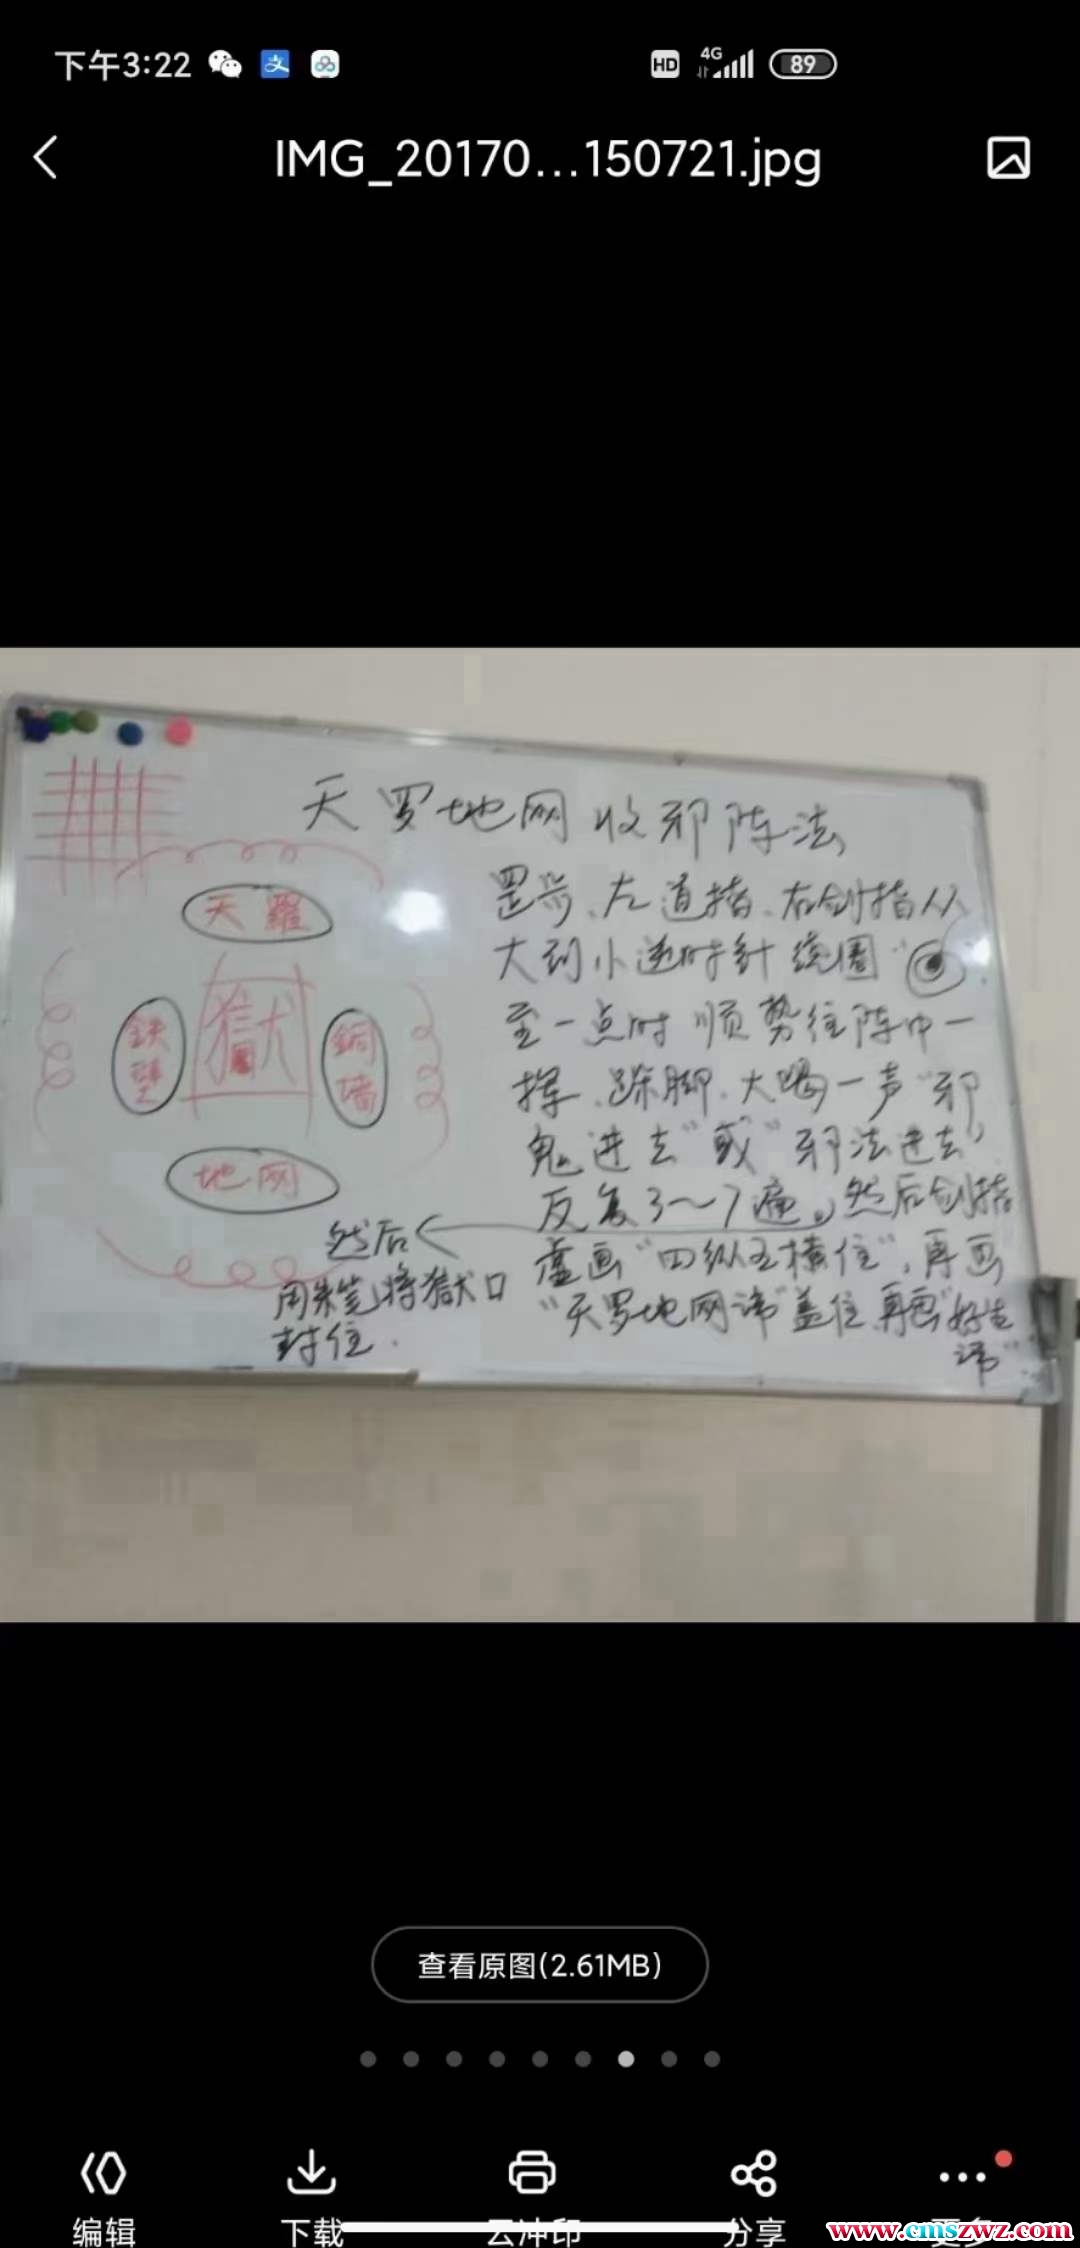 下午3:22
HD 4G 89
IMG_20170...150721.jpg
天罗地网收邪阵法
天羅
獄
鉄壁
銅墙
地网
罡步、左道指、右剑指从
大到小逆时针绕圈“ ”
至一点时顺势往阵中一
挥、跺脚、大喝一声“邪
鬼进去”或“邪法进去”
反复3～7遍。然后剑指
虚画“四纵五横住”，再画
“天罗地网讳”盖住再画“好生
讳”
然后
用朱笔将獄口
封住.
查看原图(2.61MB)
编辑
下载
云冲印
分享
更多
www.cmszwz.com